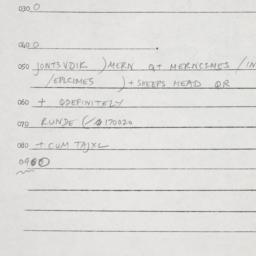 030 0
040 0
050 JONTSVDIK ) MERN Q+ MERNCSMES / IN
/EPLCIMES ) + SHEEPS HEAD OR
060 + QDEFINITELY
070 RUNDE (/ 170020
080 + CUM TAJXL